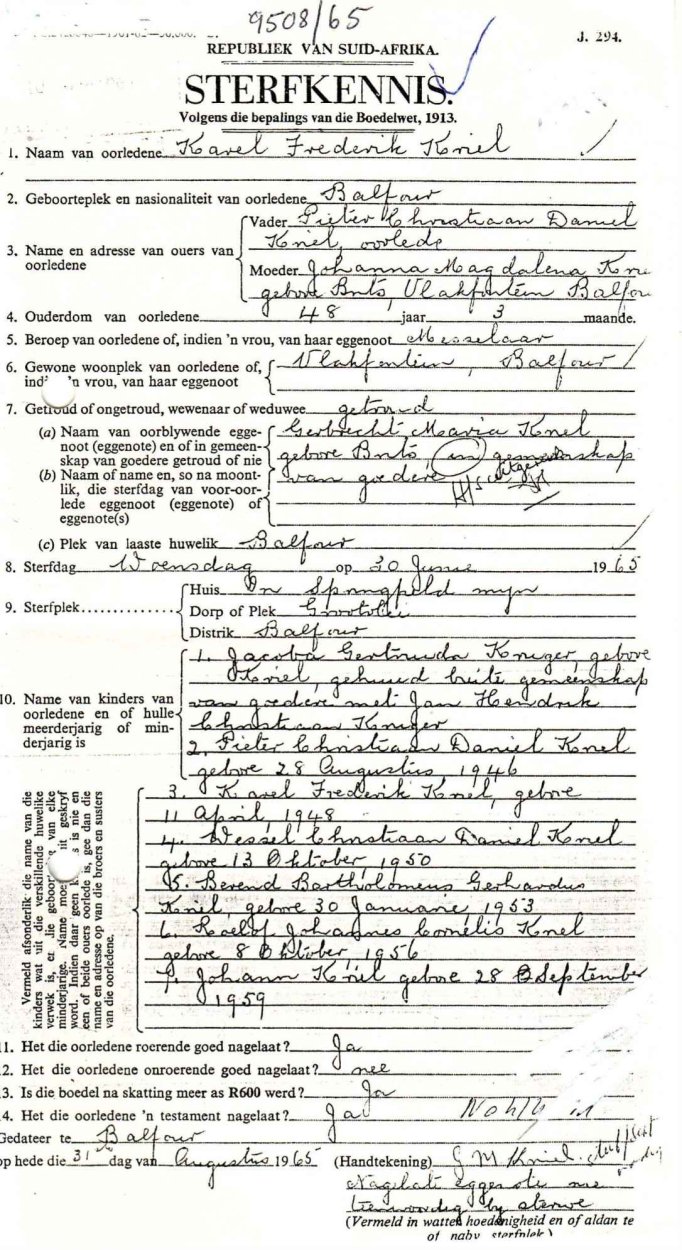 9508/65
J. 294.
REPUBLIEK VAN SUID-AFRIKA.
STERFKENNIS.
Volgens die bepalings van die Boedelwet, 1913.
1. Naam van oorledene Karel Frederik Kriel
2. Geboorteplek en nasionaliteit van oorledene Balfour
3. Name en adresse van ouers van oorledene
Vader Pieter Christiaan Daniel
Kriel, oorlede
Moeder Johanna Magdalena Krie
gebore Brits, Vlakfontein Balfou
4. Ouderdom van oorledene 48 jaar 3 maande.
5. Beroep van oorledene of, indien 'n vrou, van haar eggenoot Messelaar
6. Gewone woonplek van oorledene of, ind 'n vrou, van haar eggenoot
Vlakfontein, Balfour
7. Getroud of ongetroud, wewenaar of weduwee getroud
(a) Naam van oorblywende eggenoot (eggenote) en of in gemeenskap van goedere getroud of nie
Gerbrecht Maria Kriel
gebore Brits, in gemeenskap
van goedere
(b) Naam of name en, so na moontlik, die sterfdag van voor-oorlede eggenoot (eggenote) of eggenote(s)
(c) Plek van laaste huwelik Balfour
8. Sterfdag Woensdag op 30 Junie 1965
9. Sterfplek
Huis In Springfield myn
Dorp of Plek Grootvlei
Distrik Balfour
10. Name van kinders van oorledene en of hulle meerderjarig of minderjarig is
1. Jacoba Gertruida Kruger, gebore
Kriel, gehuud buite gemeenskap
van goedere met Jan Hendrik
Christiaan Kruger
2. Pieter Christiaan Daniel Kriel
gebore 28 Augustus 1946
3. Karel Frederik Kriel, gebore
11 April, 1948
4. Wessel Christiaan Daniel Kriel
gebore 13 Oktober, 1950
5. Berend Bartholomeus Gerhardus
Kriel, gebore 30 Januarie, 1953
6. Roelof Johannes Cornelis Kriel
gebore 8 Oktober, 1956
7. Johann Kriel gebore 28 September
1959
Vermeld afsonderlik die name van die
kinders wat uit die verskillende huwelike
verwek is, en die geboor van elke
minderjarige. Name moe uit geskryf
word. Indien daar geen k s is nie en
een of beide ouers oorlede is, gee dan die
name en adresse op van die broers en susters
van die oorledene.
11. Het die oorledene roerende goed nagelaat? Ja
12. Het die oorledene onroerende goed nagelaat? nee
13. Is die boedel na skatting meer as R600 werd? Ja
14. Het die oorledene 'n testament nagelaat? Ja
Gedateer te Balfour
op hede die 31 dag van Augustus 1965 (Handtekening) G M Kriel
Nagelate eggenote nie
teenwoordig by sterwe
(Vermeld in watter hoedanigheid en of aldan te
of naby sterfplek)